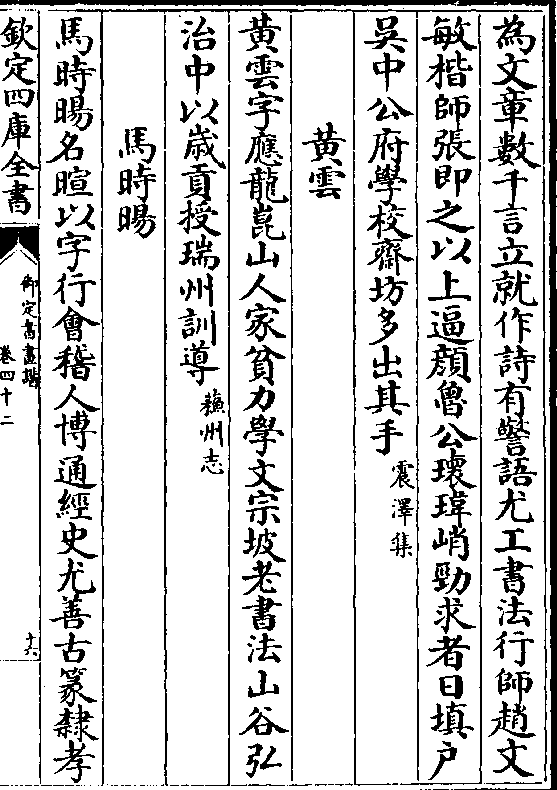 為文章數千言立就作詩有警語尤工書法行師趙文
敏楷師張即之以上逼顔魯公瓌瑋峭勁求者日填户
吳中公府學校齋坊多出其手震澤集
黃雲
黃雲字應龍崑山人家貧力學文宗坡老書法山谷弘
治中以歲貢授瑞州訓導蘓州志
馬時暘
馬時暘名暄以字行會稽人博通經史尤善古篆隸孝
欽定四庫全書
御定書畫譜
卷四十二
十六